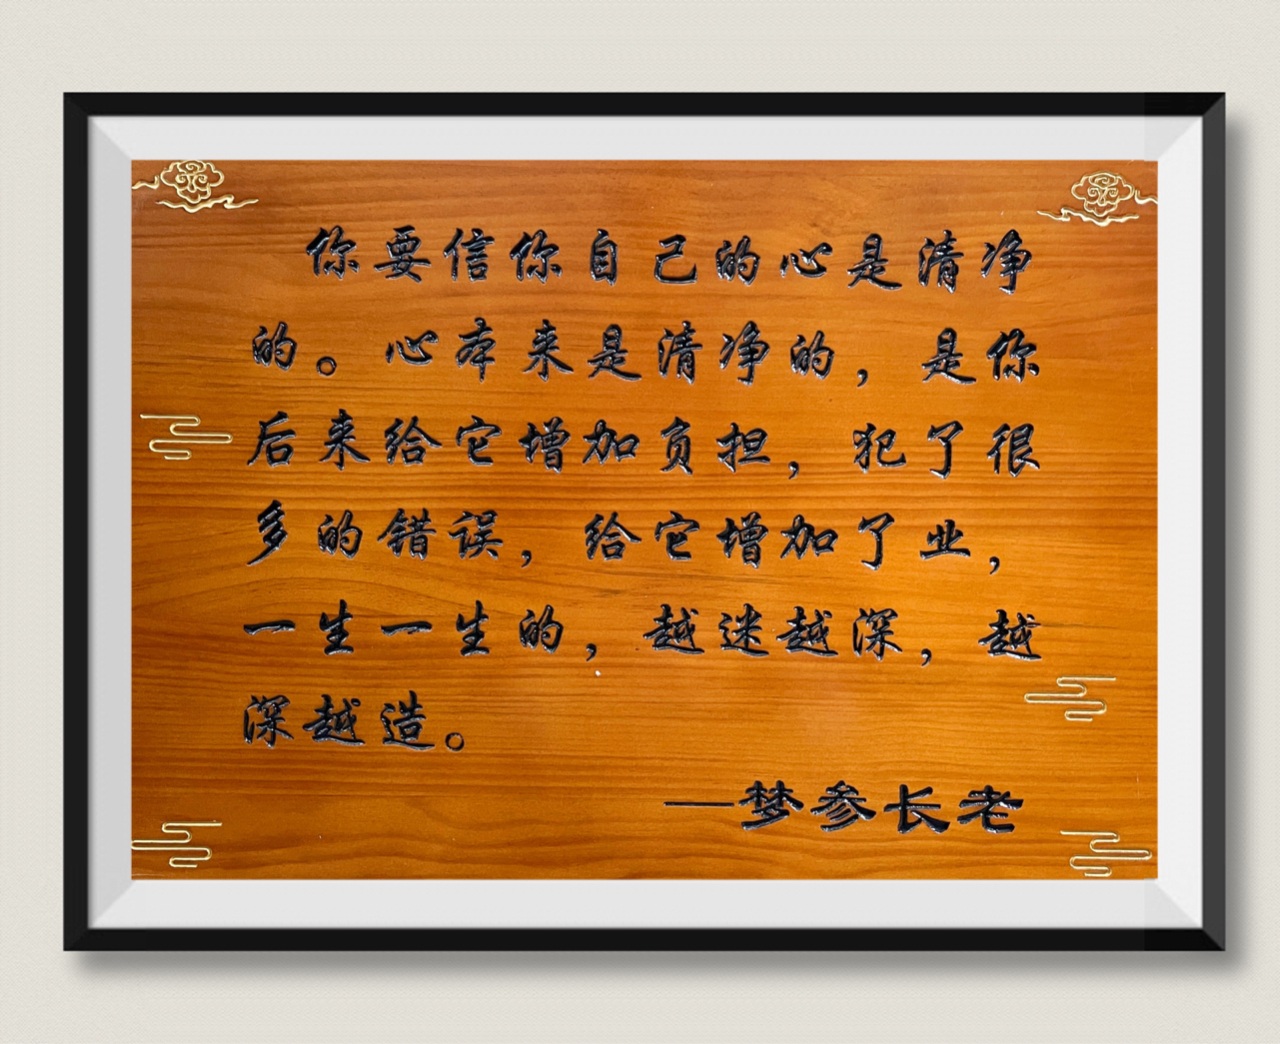 你要信你自己的心是清净
的。心本来是清净的，是你
后来给它增加负担，犯了很
多的错误，给它增加了业，
一生一生的，越迷越深，越
深越造。
—梦参长老